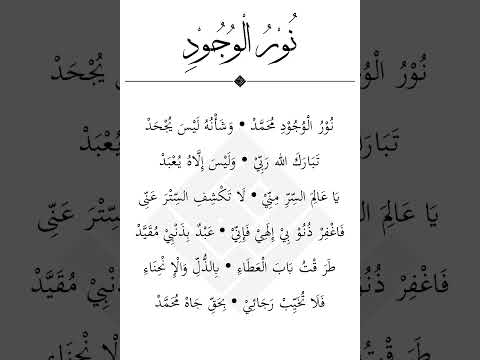 نُوْرُ الْوُجُوْدِ
نُوْرُ الْوُجُوْدِ مُحَمَّدْ • وَشَأْنُهُ لَيْسَ يُجْحَدْ
تَبَارَكَ الله رَبِّيْ • وَلَيْسَ إِلَّاهُ يُعْبَدْ
يَا عَالِمَ السِّرِّ مِنِّيْ • لَا تَكْشِفِ السِّتْرَ عَنِّى
فَاغْفِرْ ذُنُوْ بِيْ إِلَهِيْ فَإِنِّيْ • عَبْدٌ بِذَنْبِيْ مُقَيَّدْ
طَرَ قْتُ بَابَ الْعَطَاءِ • بِالذُّلِّ وَالْإِ نْحِنَاءِ
فَلَا تُخَيِّبْ رَجَائِيْ • بِحَقِّ جَاهْ مُحَمَّدْ